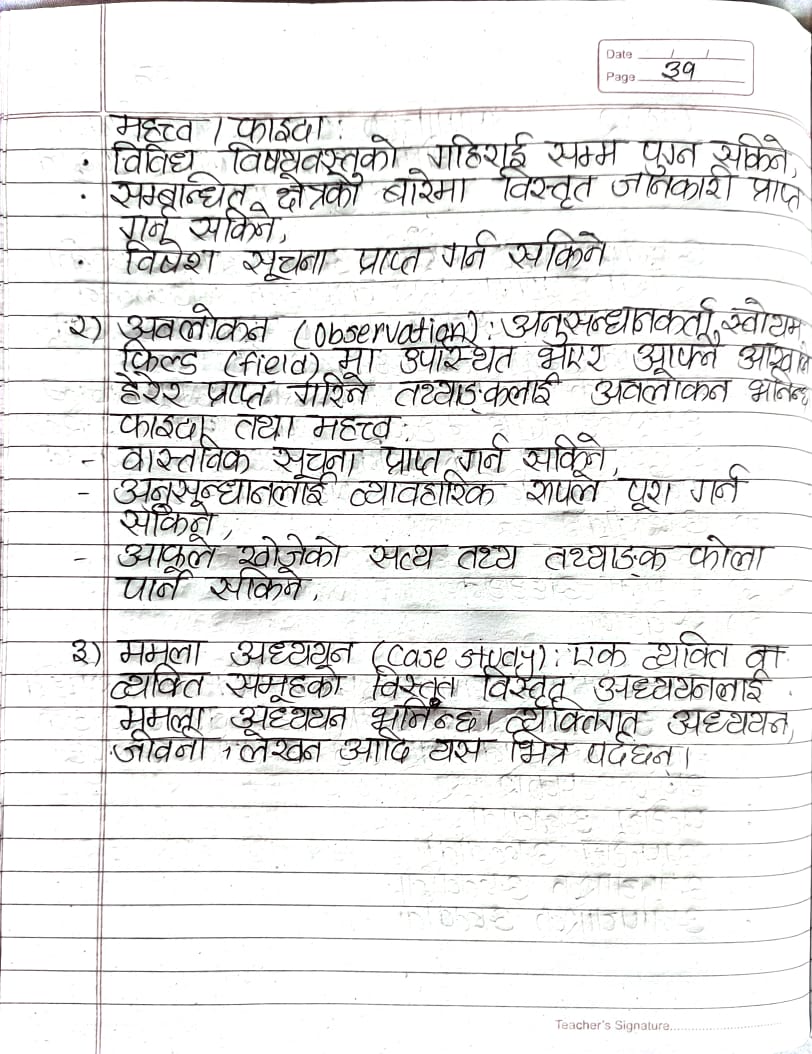 Date / /
Page 39
महत्त्व / फाइदा :
• विविध विषयवस्तुको गहिराई सम्म पुग्न सकिने,
• सम्बान्धित क्षेत्रको बारेमा विस्तृत जानकारी प्राप्त
गर्नु सकिने,
• विषेश सूचना प्राप्त गर्न सकिने
२) अवलोकन (observation) : अनुसन्धानकर्ता स्वोयम
फिल्ड (field) मा उपस्थित भएर आफ्नै आँखाले
हेरेर प्राप्त गरिने तथ्याङ्कलाई अवलोकन भनिन्छ
फाइदा तथा महत्त्व :
- वास्तविक सूचना प्राप्त गर्न सकिने,
- अनुसन्धानलाई व्यावहारिक रूपले पूरा गर्न
सकिने,
- आफूले खोजेको सत्य तथ्य तथ्याङ्क फोला
पार्न सकिने,
३) ममला अध्ययन (case study) : एक व्यक्ति वा
व्यक्ति समूहको विस्तृत विस्तृत अध्ययनलाई
ममला अध्ययन भनिन्छ। व्यक्तिगत अध्ययन,
जीवनी, लेखन आदि यस भित्र पर्दछन्।
Teacher's Signature